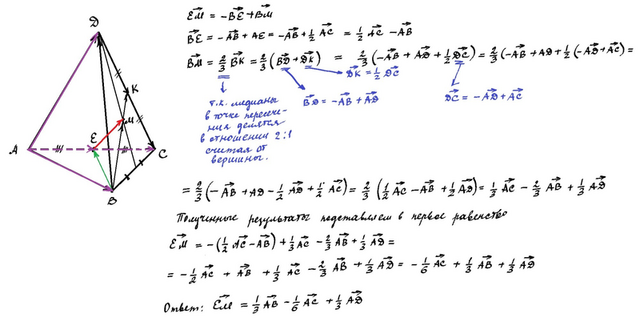 D
K
M
E
A
C
B
EM = -BE + BM
BE = -AB + AE = -AB + 1/2 AC = 1/2 AC - AB
BM = 2/3 BK = 2/3 (BD + DK) = 2/3 (-AB + AD + 1/2 DC) = 2/3 (-AB + AD + 1/2 (-AD + AC) =
DK = 1/2 DC
т.к. медианы
в точке пересече-
ния делятся
в отношении 2:1
считая от
вершины.
BD = -AB + AD
DC = -AD + AC
= 2/3 (-AB + AD - 1/2 AD + 1/2 AC) = 2/3 (1/2 AC - AB + 1/2 AD) = 1/3 AC - 2/3 AB + 1/3 AD
Полученные результаты подставляем в первое равенство
EM = -(1/2 AC - AB) + 1/3 AC - 2/3 AB + 1/3 AD =
= -1/2 AC + AB + 1/3 AC - 2/3 AB + 1/3 AD = -1/6 AC + 1/3 AB + 1/3 AD
Ответ: EM = 1/3 AB - 1/6 AC + 1/3 AD